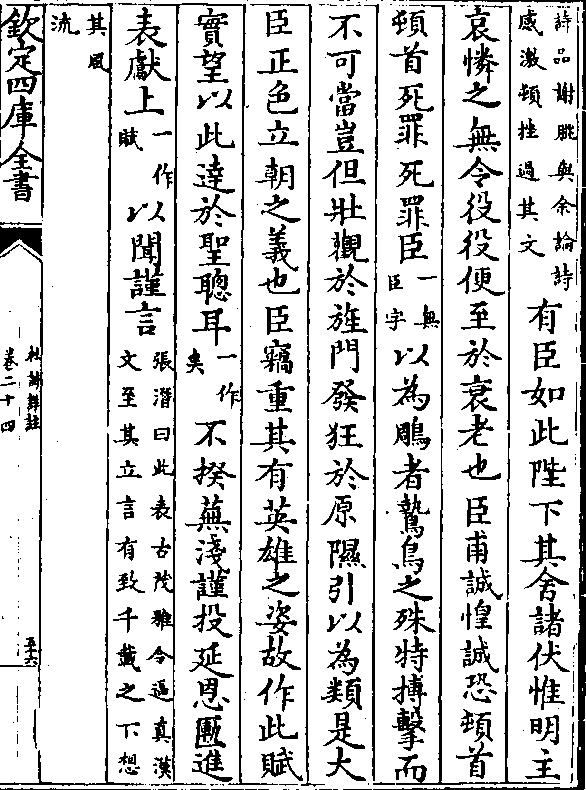 詩品謝朓與余論詩
感激頓挫過其文
有臣如此陛下其舍諸伏惟明主
哀憐之無令役役便至於衰老也臣甫誠惶誠恐頓首
頓首死罪死罪臣
一無
臣字
以為鵰者鷙鳥之殊特搏擊而
不可當豈但壯觀於旌門發狂於原隰引以為類是大
臣正色立朝之義也臣竊重其有英雄之姿故作此賦
實望以此達於聖聰耳
一作
矣
不揆蕪淺謹投延恩匭進
表獻上
一作
賦
以聞謹言
張潛曰此表古茂雅令逼真漢
文至其立言有致千載之下想
其風
流
欽定四庫全書
杜詩詳註
卷二十四
五十六